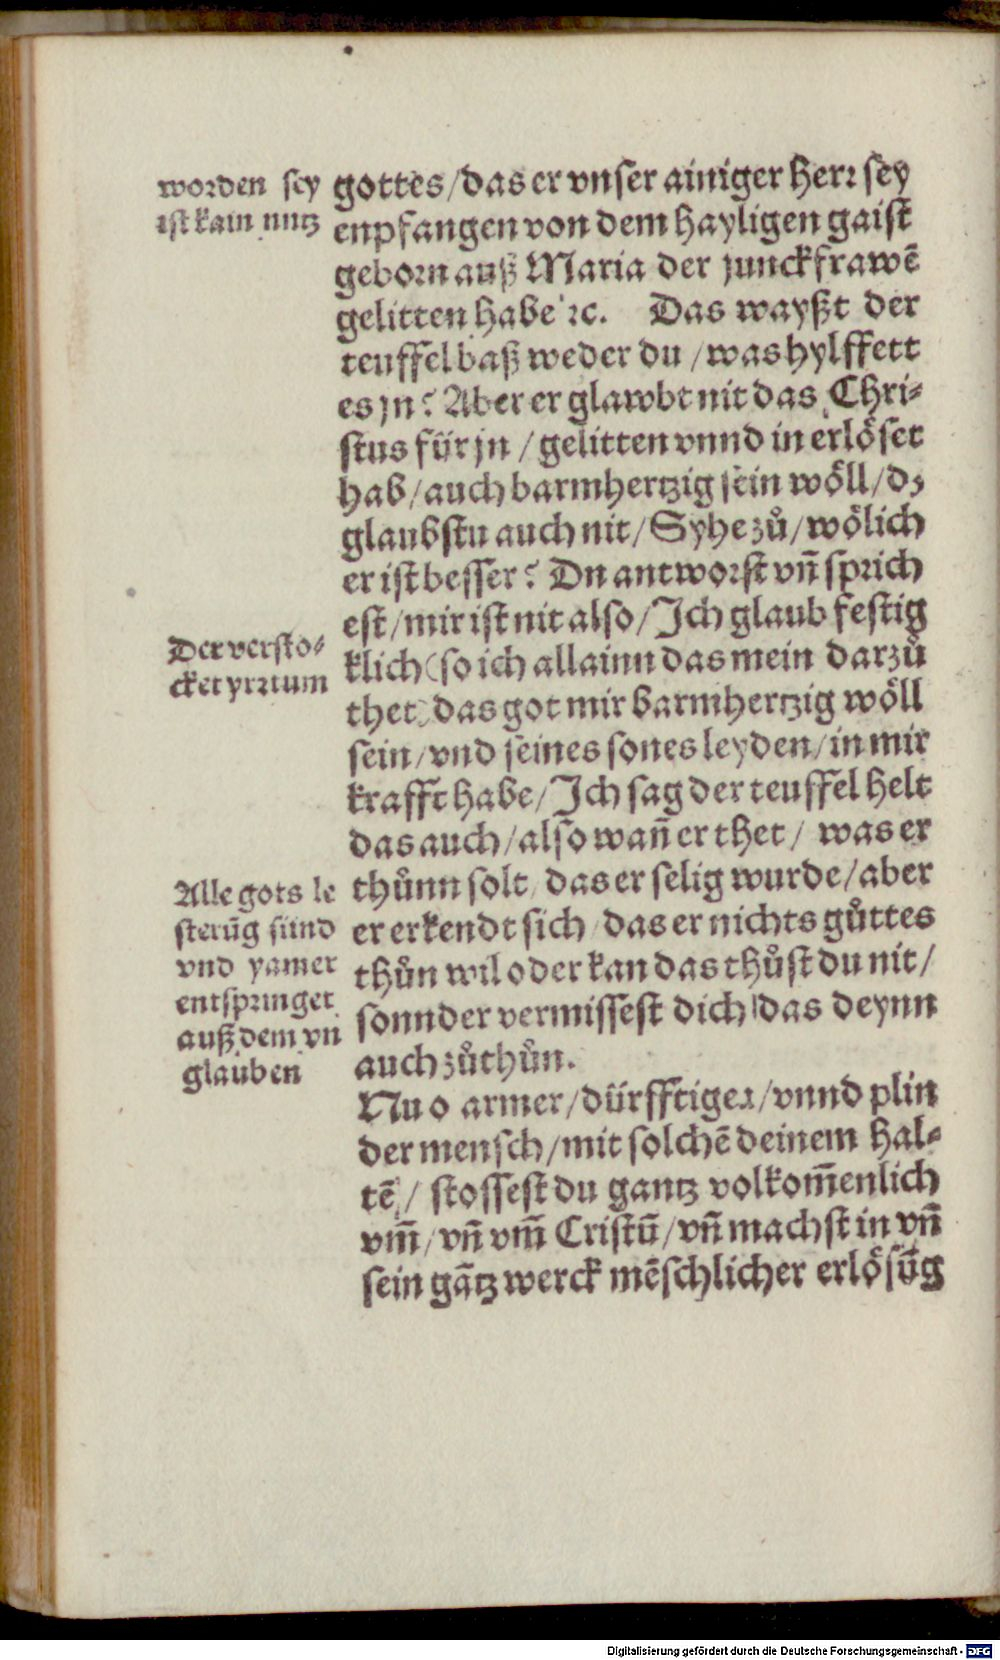 worden sey
ist kain nutz
gottes/das er vnser ainiger Herr sey
enpfangen von dem hayligen gaist
geborn auß Maria der junckfrawē
gelitten habe ꝛc. Das wayßt der
teuffel baß weder du/was hylffett
es jn? Aber er glawbt nit das Chri-
stus für jn/gelitten vnnd in erlöset
hab/auch barmhertzig sein wöll/dz
glaubstu auch nit/Syhe zů/wölich
er ist besser? Du antworst vñ sprich
est/mir ist nit also/Ich glaub festig
Der versto-
cket yrrtum
klich (so ich allainn das mein darzů
thet) das got mir barmhertzig wöll
sein/vnd seines sones leyden/in mir
krafft habe/Ich sag der teuffel helt
das auch/also wañ er thet/ was er
Alle gots le
sterūg sünd
vnd yamer
entspringet
auß dem vn
glauben
thůnn solt/das er selig wurde/aber
er erkendt sich/das er nichts gůttes
thůn wil oder kan das thůst du nit/
sonnder vermissest dich/das deynn
auch zůthůn.
Nu o armer/dürfftiger/vnnd plin
der mensch/mit solchē deinem hal-
tē/ stossest du gantz volkom̄enlich
vm̄/vñ vm̄ Cristū/vñ machst in vñ
sein gātz werck mēschlicher erlösūg
Digitalisierung gefördert durch die Deutsche Forschungsgemeinschaft - DFG